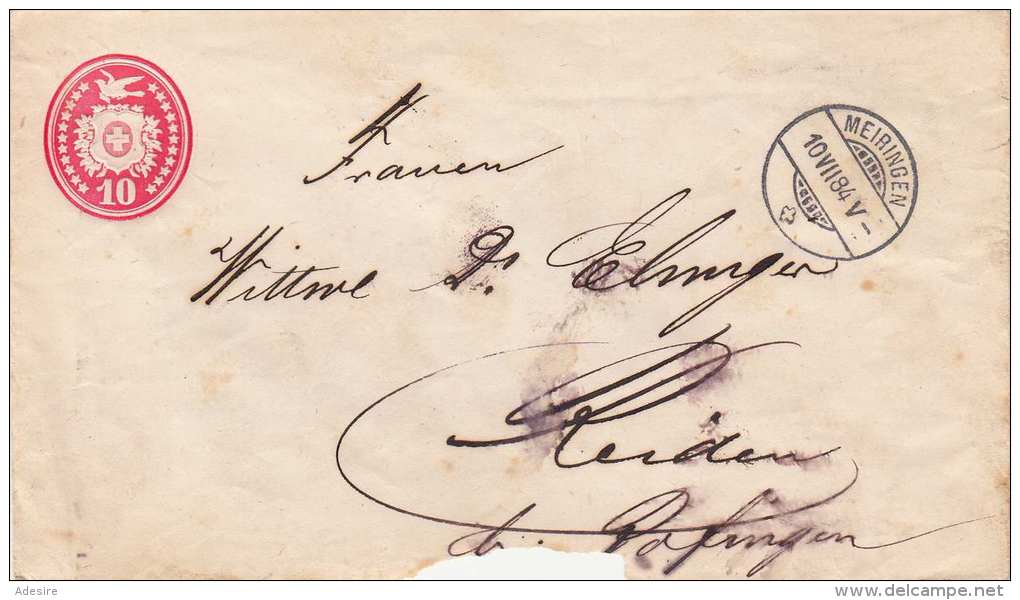 10
MEIRINGEN
10 VII 84 V-
Frauen
Wittwe Dr. Elmiger
Reiden
b. Zofingen
Adesire
delcampe.net